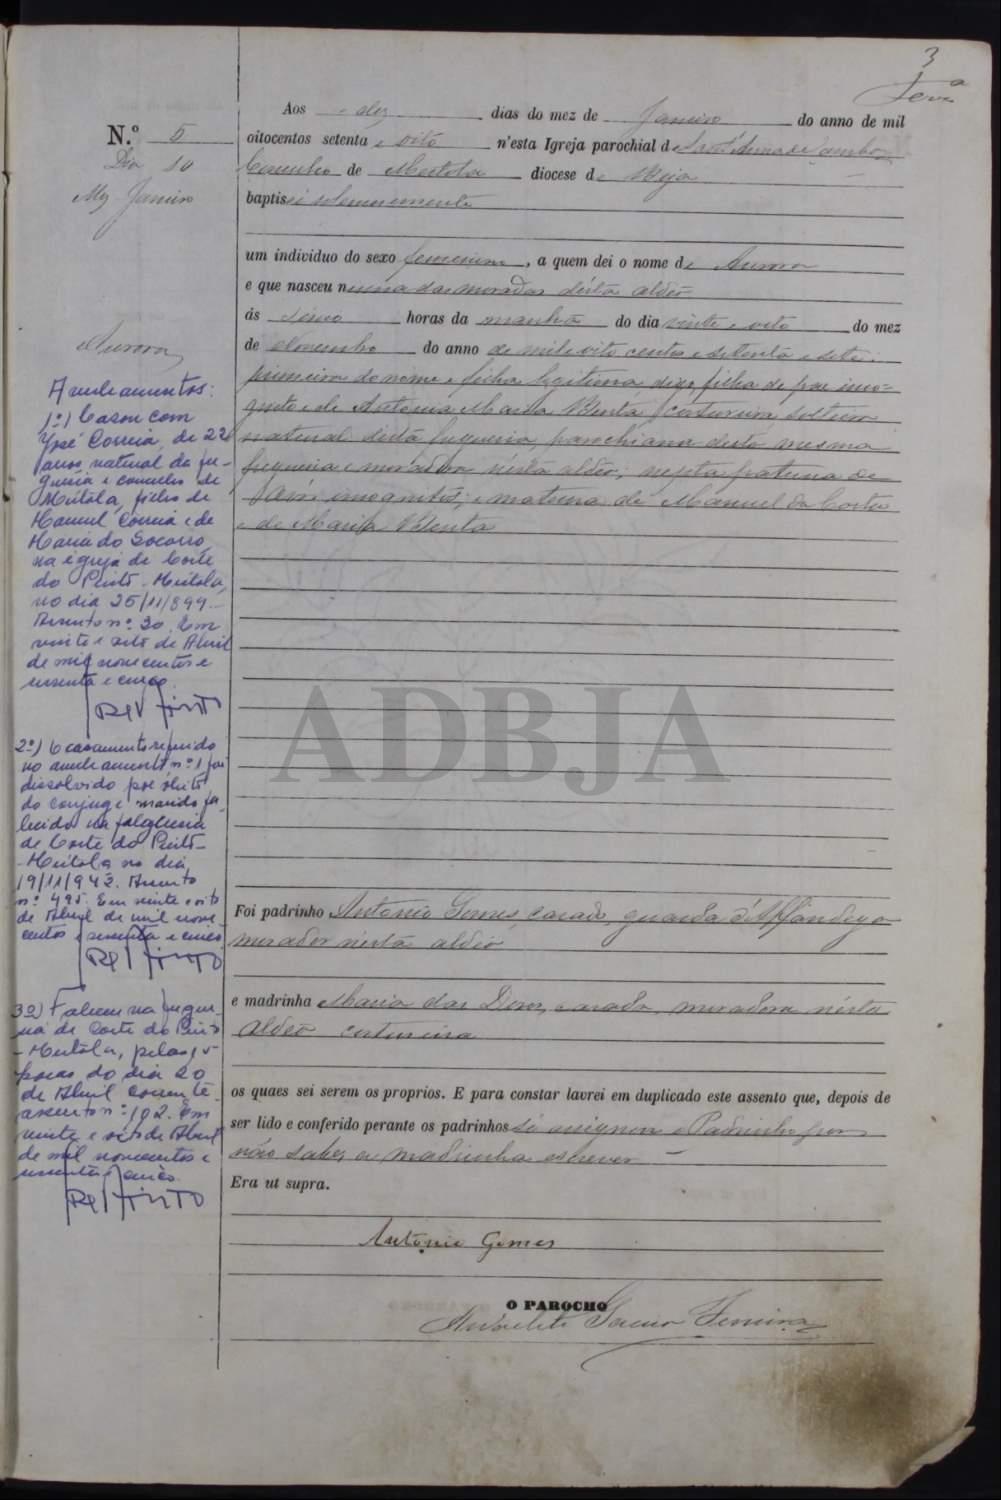 3
Ferra
N.º 5
Dia 10
Mez Janeiro
Aurora
Aos dez dias do mez de Janeiro do anno de mil
oitocentos setenta e oito n'esta Igreja parochial de Sant'Anna de Cambas
Concelho de Mertola diocese de Beja
baptisei solemnemente
um individuo do sexo femenino, a quem dei o nome de Aurora
e que nasceu n'uma das moradas désta aldeõ
ás sinco horas da manhã do dia vinte e oito do mez
de do anno de mil e oito centos e setenta e sete
primeira do nome e filha legitima digo filha de pae inco-
gnito e de Antonia Maria Benta costureira solteira
natural désta freguezia, parochiana desta mesma
freguezia e moradora nésta aldeõ; nepta paterna de
Avós incognitos; e materna de Manuel da Costa
e de Maria Benta
Foi padrinho Antonio Gomes, casado, guarda d'Alfandega
morador nésta aldeõ
e madrinha Maria das Dores, casada, moradora nésta
aldeõ costureira
os quaes sei serem os proprios. E para constar lavrei em duplicado este assento que, depois de
ser lido e conferido perante os padrinhos só assignou o Padrinho por
não saber a madrinha escrever
Era ut supra.
Antonio Gomes
O PAROCHO
Ferreira
Averbamentos:
1º) Casou com
José Correia, de 22
anos, natural da fre-
guesia e concelho de
Mértola, filho de
Manuel Correia e de
Maria do Socorro
na igreja de Corte
do Pinto - Mértola,
no dia 25/11/899.
Assento nº 30. Em
vinte e oito de Abril
de mil novecentos e
sessenta e cinco.
2º) O casamento referido
no averbamento nº 1 foi
dissolvido por óbito
do conjuge marido fa-
lecido na freguesia
de Corte do Pinto -
- Mértola no dia
19/11/942. Assento
nº 495. Em vinte e oito
de Abril de mil nove-
centos e sessenta e cinco
3º) Faleceu na fregue-
sia de Corte do Pinto
- Mértola, pelas 5
horas do dia 20
de Abril corrente
assento nº 192. Em
vinte e oito de Abril
de mil novecentos e
sessenta e cinco.
ADBJA